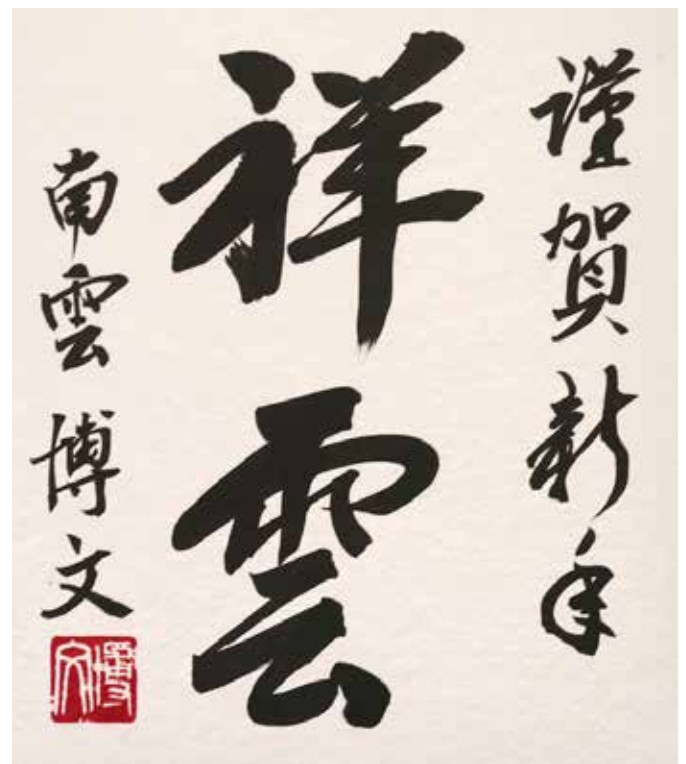 謹賀新年
祥雲
南雲博文
博文